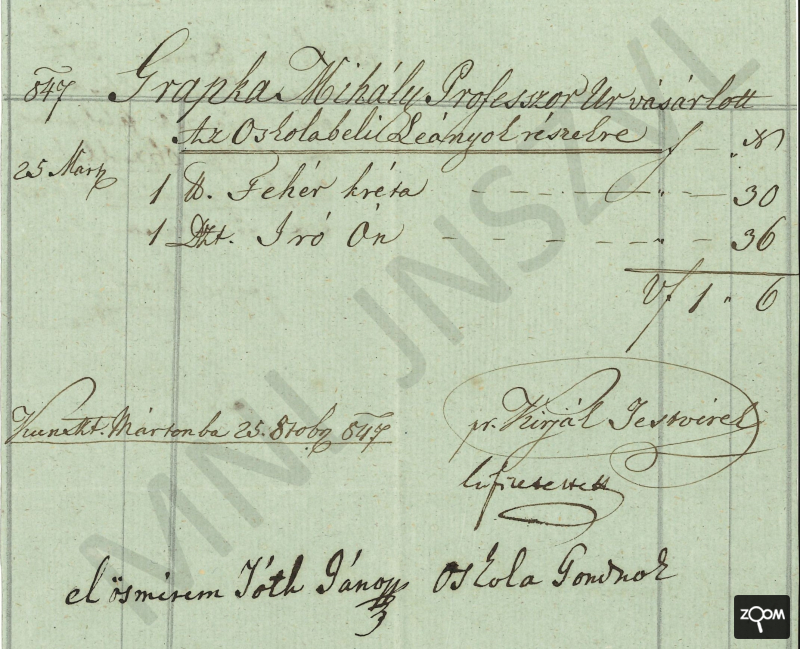 847 Grapka Mihály Professzor Ur vásárlott
Az Oskolabeli Leányok részekre f " X
25 Mart 1 ℔. Fehér kréta " 30
1 Dkt. Iró Ón " 36
Vf 1 " 6
Kunszt. Mártonba 25. 8tobr 847
pr. Kirják Testvérek
kifizetetett
elösmérem Tóth János Oskola Gondnok
MNL JNSZVL
ZOOM